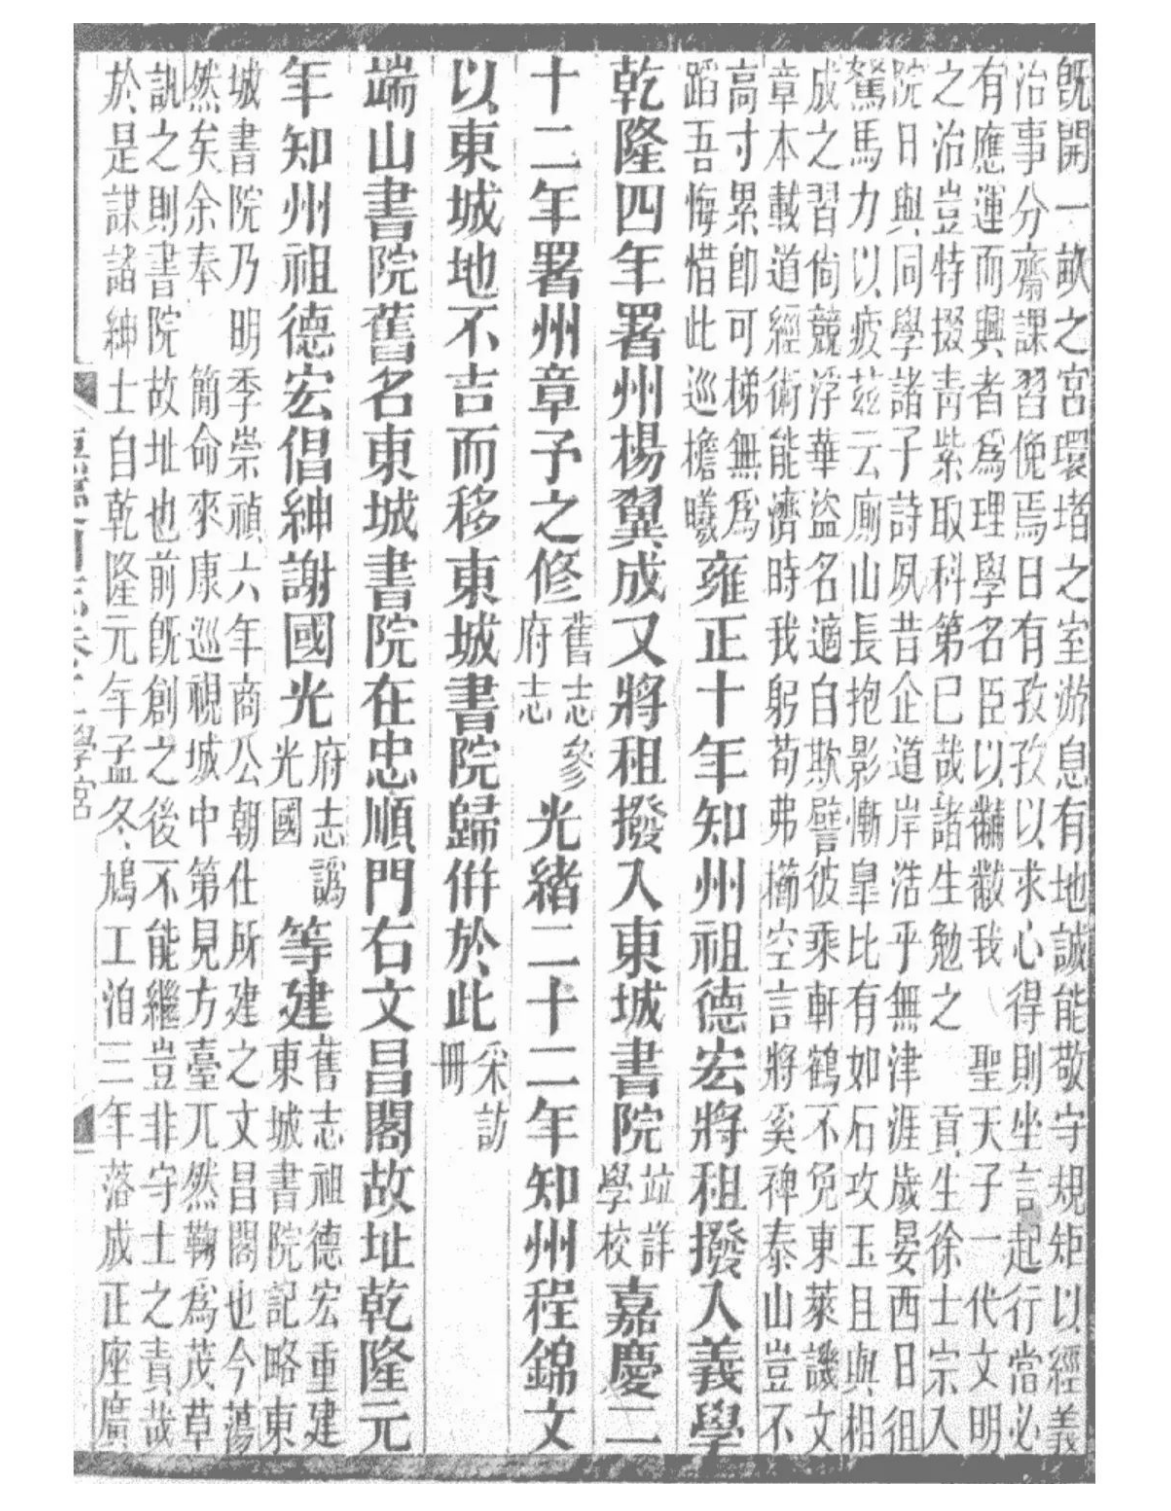 旣開一畝之宮環堵之室游息有地誠能敬守規矩以經義
治事分齋課習俛焉日有孜孜以求心得則坐言起行當必
有應運而興者爲理學名臣以黼黻我　聖天子一代文明
之治豈特掇靑紫取科第巳哉諸生勉之　貢生徐士宗入
院日與同學諸子詩夙昔企道岸浩乎無津涯歲晏西日徂
駑馬力以疲茲云廁山長抱影慚皐比有如石攻玉且與相
成之習尙競浮華盜名適自欺譬彼乘軒鶴不免東萊譏文
章本載道經術能濟時我躬苟弗櫛空言將奚裨泰山豈不
高寸累卽可梯無爲
蹈吾悔惜此巡檐曦
雍正十年知州祖德宏將租撥入義學
乾隆四年署州楊翼成又將租撥入東城書院
竝詳
學校
嘉慶二
十二年署州章予之修
舊志參
府志
光緒二十二年知州程錦文
以東城地不吉而移東城書院歸倂於此
采訪
冊
端山書院舊名東城書院在忠順門右文昌閣故址乾隆元
年知州祖德宏倡紳謝國光
府志譌
光國
等建
舊志祖德宏重建
東城書院記略東
城書院乃明季崇禎六年商公朝仕所建之文昌閣也今蕩
然矣余奉　簡命來康巡視城中第見方臺兀然鞠爲茂草
訊之則書院故址也前旣創之後不能繼豈非守士之責哉
於是謀諸紳士自乾隆元年孟冬鳩工洎三年落成正座廣
學宮